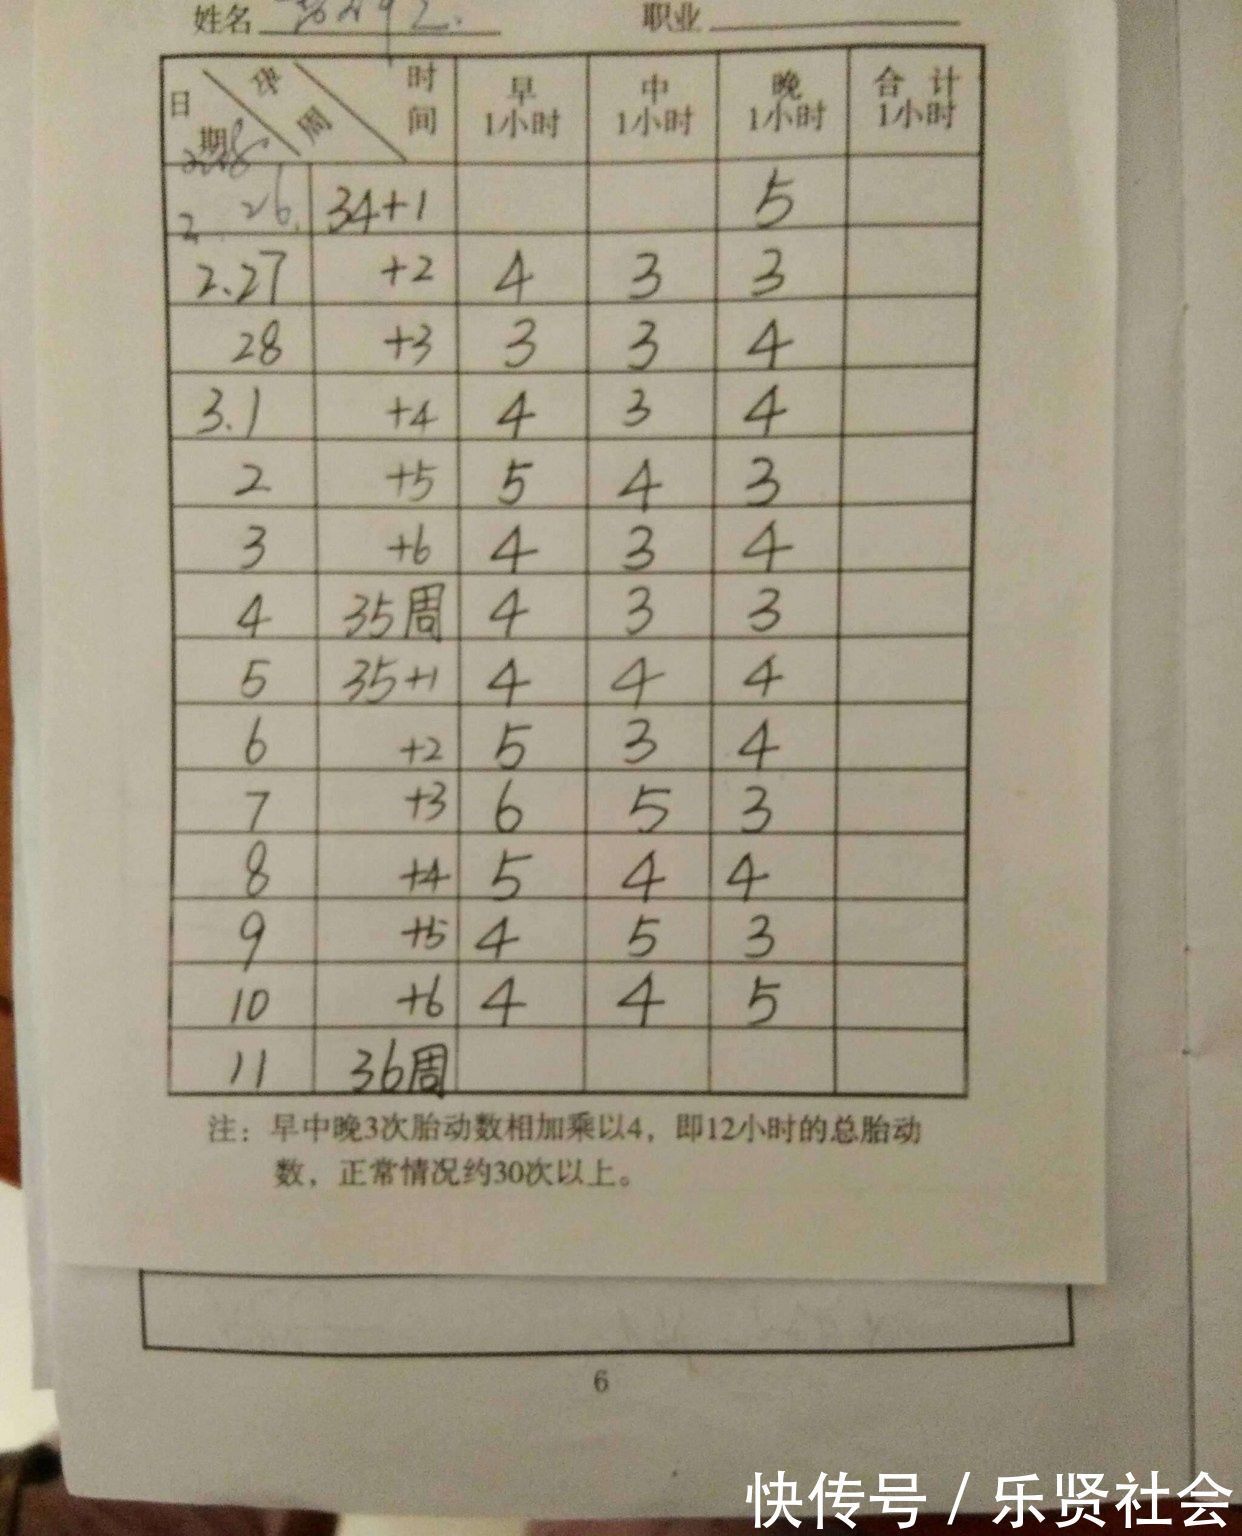 姓名 职业
日期 孕周 时间 早1小时 中1小时 晚1小时 合计1小时
2 26 34+1 5
2.27 +2 4 3 3
28 +3 3 3 4
3.1 +4 4 3 4
2 +5 5 4 3
3 +6 4 3 4
4 35周 4 3 3
5 35+1 4 4 4
6 +2 5 3 4
7 +3 6 5 3
8 +4 5 4 4
9 +5 4 5 3
10 +6 4 4 5
11 36周
注：早中晚3次胎动数相加乘以4，即12小时的总胎动
数，正常情况约30次以上。
6
快传号 / 乐贤社会